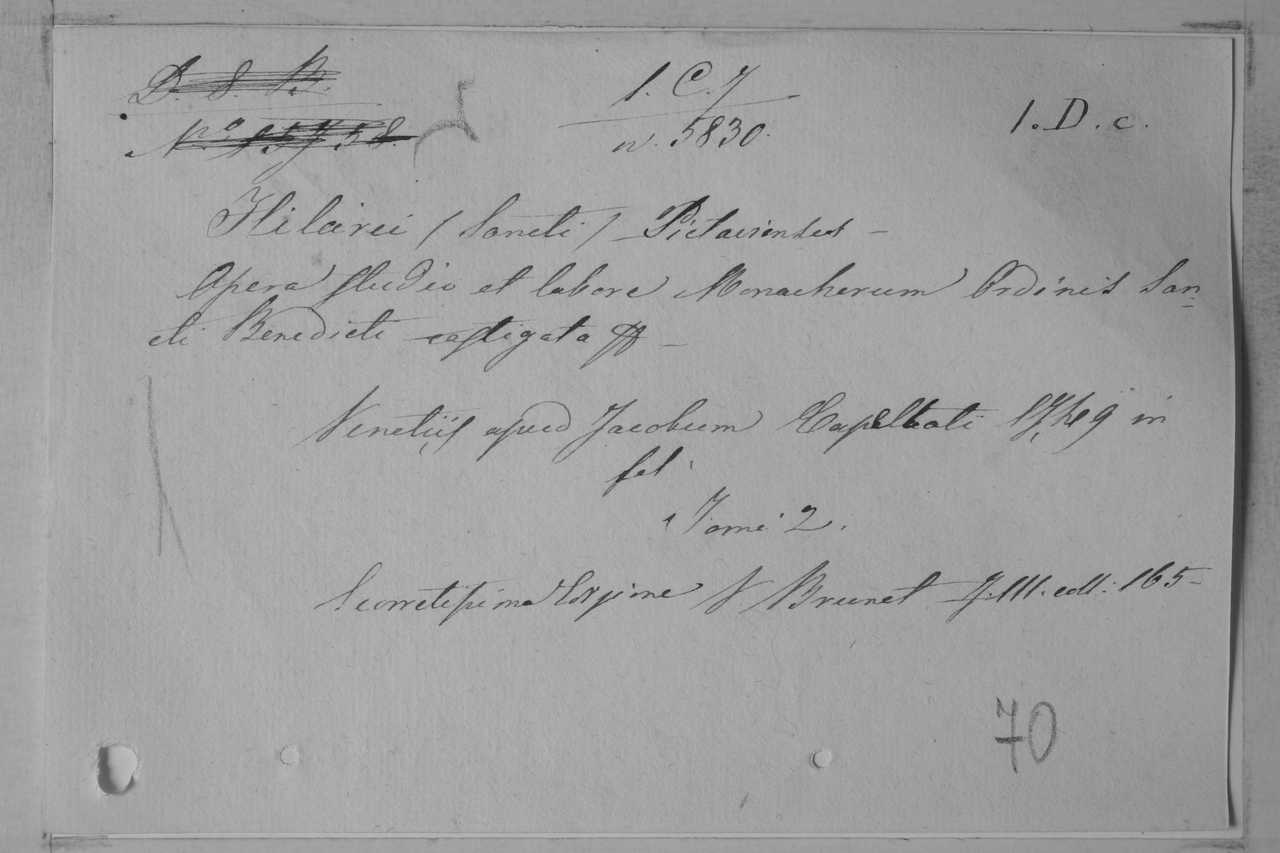 D. 8. B.
1. C. 7
1. D. c.
n. 5830.
Hilarii (Sancti) Pictaviensis -
Opera studio et labore Monachorum Ordinis San-
cti Benedicti castigata
Venetiis apud Jacobum 1749 in
fol.
Tomi 2.
Scorretissima V Brunet T. III. coll. 165-
70